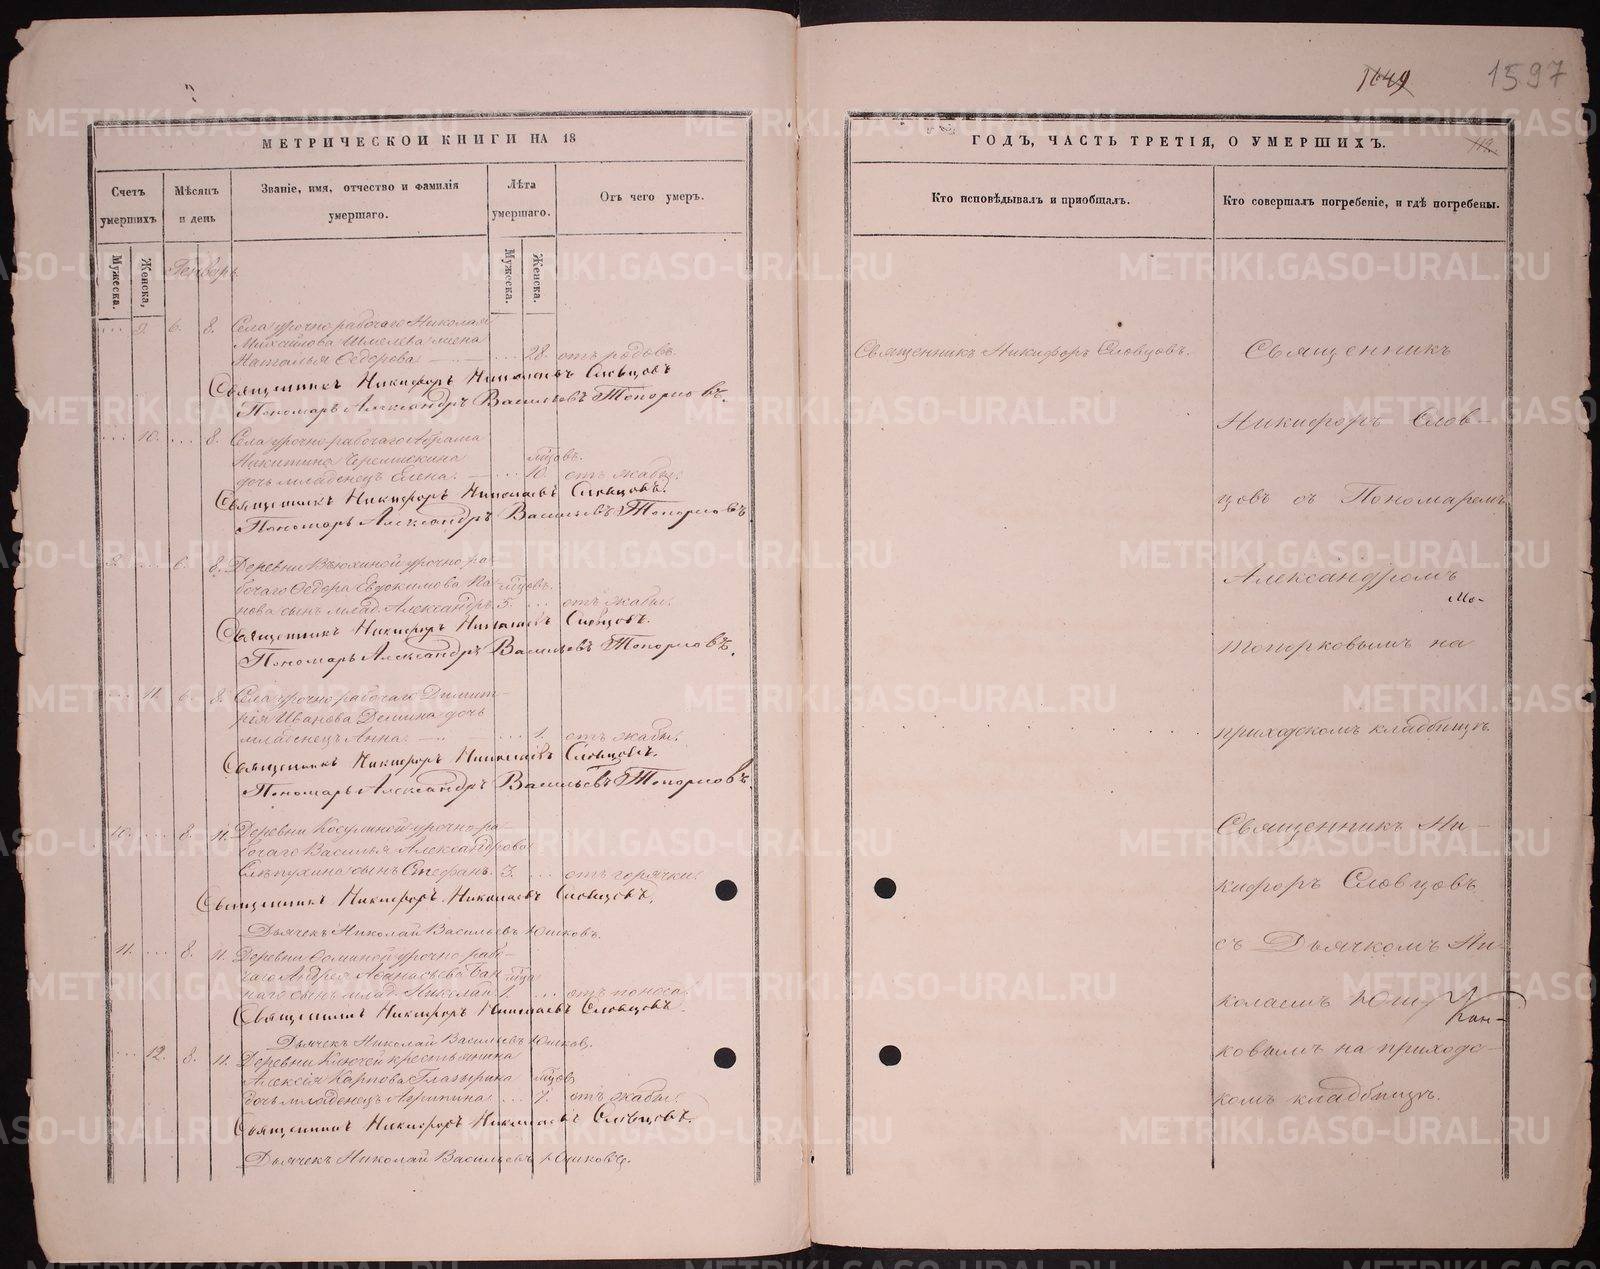 1649
1597
МЕТРИЧЕСКОЙ КНИГИ НА 18
ГОДЪ, ЧАСТЬ ТРЕТІЯ, О УМЕРШИХЪ.
Счетъ умершихъ
Мѣсяцъ и день
Званіе, имя, отчество и фамилія умершаго.
Лѣта умершаго.
Отъ чего умеръ.
Кто исповѣдывалъ и пріобщалъ.
Кто совершалъ погребеніе, и гдѣ погребены.
Мужеска.
Женска,
Мужеска.
Женска.
Генварь
9. 6. 8. Села урочно рабочаго Николая
Михайлова Шмелева жена
Наталья Ѳедорова 28. отъ родовъ.
Священникъ Никифоръ Николаевъ Словцовъ
Пономарь Александръ Васильевъ Топорковъ.
10. 8. Села урочно-рабочаго Абрама
Никитина Черемискина мѣсцовъ.
дочь младенецъ Елена. 10. отъ жабы.
Священникъ Никифоръ Николаевъ Словцовъ.
Пономарь Александръ Васильевъ Топорковъ
9. 6. 8. Деревни Вьюхиной урочно ра-
бочаго Ѳедора Евдокимова Па- мѣсцовъ.
нова сынъ млад. Александръ. 5. отъ жабы.
Священникъ Никифоръ Николаевъ Словцовъ.
Пономарь Александръ Васильевъ Топорковъ.
11. 6. 8. Села урочно рабочаго Димит-
рія Иванова Демина дочь
младенецъ Анна. 1. отъ жабы.
Священникъ Никифоръ Николаевъ Словцовъ.
Пономарь Александръ Васильевъ Топорковъ.
10. 8. 11. Деревни Косулиной урочно ра-
бочаго Василья Александрова
Слѣпухина сынъ Стефанъ. 3. отъ горячки.
Священникъ Никифоръ Николаевъ Словцовъ.
Дьячекъ Николай Васильевъ Юшковъ.
11. 8. 11. Деревни урочно рабо-
чаго Андрея Аѳанасьева
сынъ млад. Николай. 1. отъ поноса.
Священникъ Никифоръ Николаевъ Словцовъ.
Дьячекъ Николай Васильевъ Юшковъ.
12. 8. 11. Деревни Ключей крестьянина
Алексія Карпова Глазырина мѣсцов
дочь младенецъ Агрипина 7. отъ жабы.
Священникъ Никифоръ Николаевъ Словцовъ.
Дьячекъ Николай Васильевъ Юшковъ.
Священникъ Никифоръ Словцовъ.
Священникъ
Никифоръ Слов-
цовъ съ Пономаремъ
Александромъ
Топорковымъ на
приходскомъ кладбищѣ.
Священникъ Ни-
кифоръ Словцовъ
съ Дьячкомъ Ни-
колаемъ Юш
ковымъ на приходс-
комъ кладбищѣ.
METRIKI.GASO-URAL.RU